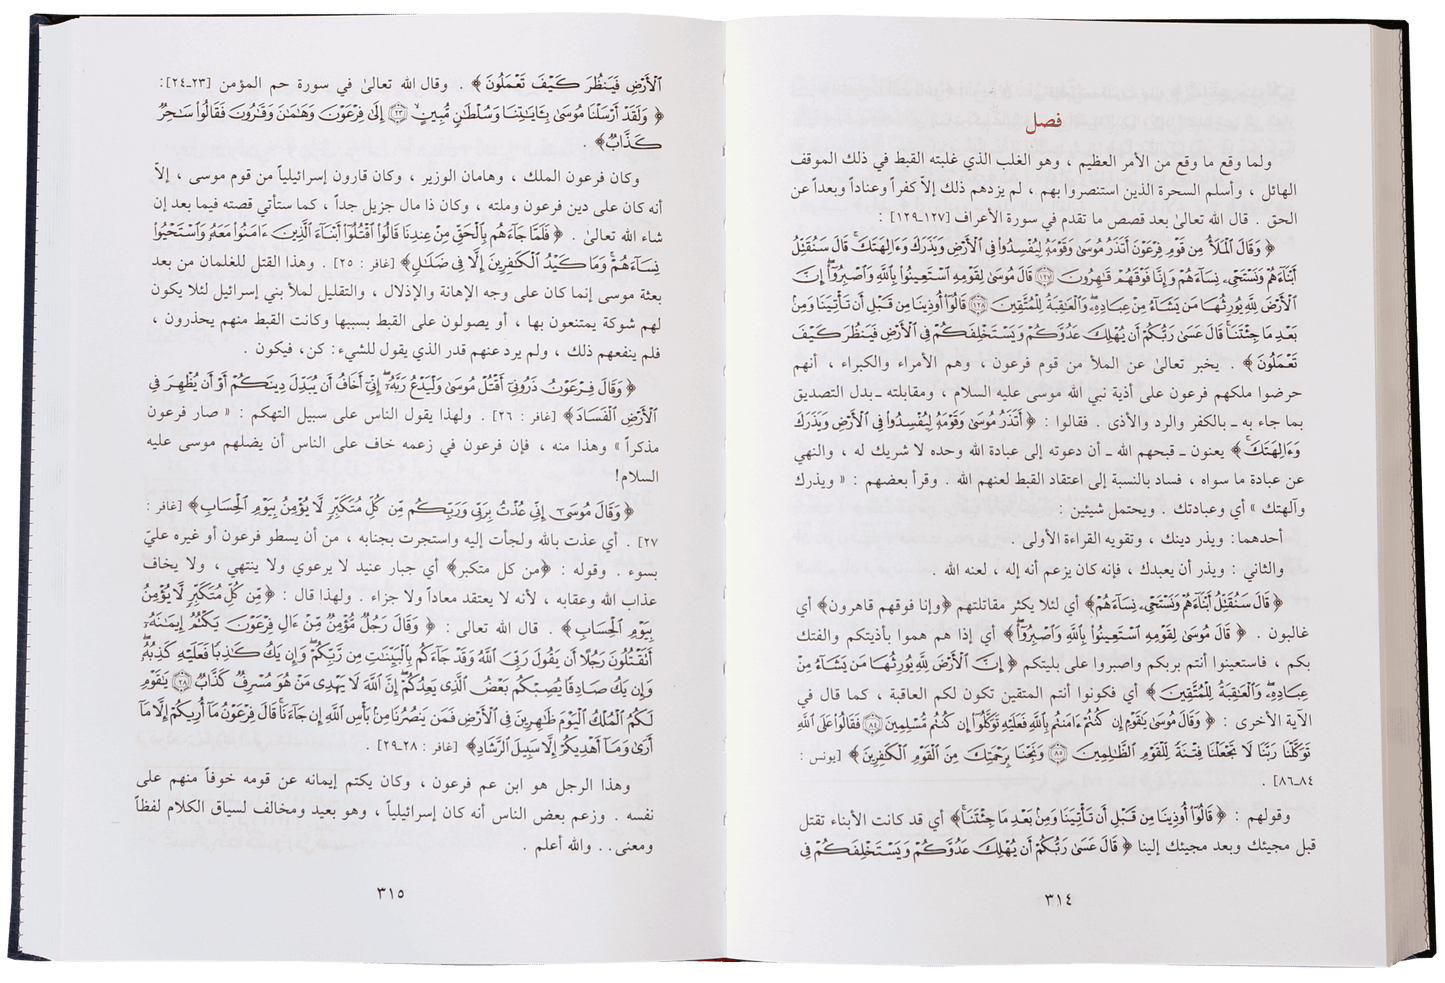 فصل
ولما وقع ما وقع من الأمر العظيم ، وهو الغلب الذي غلبته القبط في ذلك الموقف
الهائل ، وأسلم السحرة الذين استنصروا بهم ، لم يزدهم ذلك إلاّ كفراً وعناداً وبعداً عن
الحق . قال الله تعالىٰ بعد قصص ما تقدم في سورة الأعراف [١٢٧ـ١٢٩] :
﴿ وَقَالَ ٱلْمَلَأُ مِن قَوْمِ فِرْعَوْنَ أَتَذَرُ مُوسَىٰ وَقَوْمَهُۥ لِيُفْسِدُوا۟ فِى ٱلْأَرْضِ وَيَذَرَكَ وَءَالِهَتَكَ ۚ قَالَ سَنُقَتِّلُ
أَبْنَآءَهُمْ وَنَسْتَحْىِۦ نِسَآءَهُمْ وَإِنَّا فَوْقَهُمْ قَـٰهِرُونَ ۝١٢٧ قَالَ مُوسَىٰ لِقَوْمِهِ ٱسْتَعِينُوا۟ بِٱللَّهِ وَٱصْبِرُوٓا۟ ۖ إِنَّ
ٱلْأَرْضَ لِلَّهِ يُورِثُهَا مَن يَشَآءُ مِنْ عِبَادِهِۦ ۖ وَٱلْعَـٰقِبَةُ لِلْمُتَّقِينَ ۝١٢٨ قَالُوٓا۟ أُوذِينَا مِن قَبْلِ أَن تَأْتِيَنَا وَمِنۢ
بَعْدِ مَا جِئْتَنَا ۚ قَالَ عَسَىٰ رَبُّكُمْ أَن يُهْلِكَ عَدُوَّكُمْ وَيَسْتَخْلِفَكُمْ فِى ٱلْأَرْضِ فَيَنظُرَ كَيْفَ
تَعْمَلُونَ ﴾ . يخبر تعالىٰ عن الملأ من قوم فرعون ، وهم الأمراء والكبراء ، أنهم
حرضوا ملكهم فرعون على أذية نبي الله موسى عليه السلام ، ومقابلته ـ بدل التصديق
بما جاء به ـ بالكفر والرد والأذى . فقالوا : ﴿ أَتَذَرُ مُوسَىٰ وَقَوْمَهُۥ لِيُفْسِدُوا۟ فِى ٱلْأَرْضِ وَيَذَرَكَ
وَءَالِهَتَكَ ۚ ﴾ يعنون ـ قبحهم الله ـ أن دعوته إلى عبادة الله وحده لا شريك له ، والنهي
عن عبادة ما سواه ، فساد بالنسبة إلى اعتقاد القبط لعنهم الله . وقرأ بعضهم : « ويذرك
وآلهتك » أي وعبادتك . ويحتمل شيئين :
أحدهما: ويذر دينك ، وتقويه القراءة الأولى .
والثاني : ويذر أن يعبدك ، فإنه كان يزعم أنه إله ، لعنه الله .
﴿ قَالَ سَنُقَتِّلُ أَبْنَآءَهُمْ وَنَسْتَحْىِۦ نِسَآءَهُمْ ﴾ أي لئلا يكثر مقاتلتهم ﴿وإنا فوقهم قاهرون﴾ أي
غالبون . ﴿ قَالَ مُوسَىٰ لِقَوْمِهِ ٱسْتَعِينُوا۟ بِٱللَّهِ وَٱصْبِرُوٓا۟ ۖ ﴾ أي إذا هم هموا بأذيتكم والفتك
بكم ، فاستعينوا أنتم بربكم واصبروا على بليتكم ﴿ إِنَّ ٱلْأَرْضَ لِلَّهِ يُورِثُهَا مَن يَشَآءُ مِنْ
عِبَادِهِۦ ۖ وَٱلْعَـٰقِبَةُ لِلْمُتَّقِينَ ﴾ أي فكونوا أنتم المتقين تكون لكم العاقبة ، كما قال في
الآية الأخرى : ﴿ وَقَالَ مُوسَىٰ يَـٰقَوْمِ إِن كُنتُمْ ءَامَنتُم بِٱللَّهِ فَعَلَيْهِ تَوَكَّلُوٓا۟ إِن كُنتُم مُّسْلِمِينَ ۝٨٤ فَقَالُوا۟ عَلَى ٱللَّهِ
تَوَكَّلْنَا رَبَّنَا لَا تَجْعَلْنَا فِتْنَةً لِّلْقَوْمِ ٱلظَّـٰلِمِينَ ۝٨٥ وَنَجِّنَا بِرَحْمَتِكَ مِنَ ٱلْقَوْمِ ٱلْكَـٰفِرِينَ ﴾ [يونس :
٨٤ـ٨٦] .
وقولهم : ﴿ قَالُوٓا۟ أُوذِينَا مِن قَبْلِ أَن تَأْتِيَنَا وَمِنۢ بَعْدِ مَا جِئْتَنَا ۚ ﴾ أي قد كانت الأبناء تقتل
قبل مجيئك وبعد مجيئك إلينا ﴿ قَالَ عَسَىٰ رَبُّكُمْ أَن يُهْلِكَ عَدُوَّكُمْ وَيَسْتَخْلِفَكُمْ فِى
٣١٤
ٱلْأَرْضِ فَيَنظُرَ كَيْفَ تَعْمَلُونَ ﴾ . وقال الله تعالىٰ في سورة حم المؤمن [٢٣ـ٢٤]:
﴿ وَلَقَدْ أَرْسَلْنَا مُوسَىٰ بِـَٔايَـٰتِنَا وَسُلْطَـٰنٍ مُّبِينٍ ۝٢٣ إِلَىٰ فِرْعَوْنَ وَهَـٰمَـٰنَ وَقَـٰرُونَ فَقَالُوا۟ سَـٰحِرٌ
كَذَّابٌ﴾ .
وكان فرعون الملك ، وهامان الوزير ، وكان قارون إسرائيلياً من قوم موسى ، إلاّ
أنه كان على دين فرعون وملئه ، وكان ذا مال جزيل جداً ، كما ستأتي قصته فيما بعد إن
شاء الله تعالىٰ . ﴿ فَلَمَّا جَآءَهُم بِٱلْحَقِّ مِنْ عِندِنَا قَالُوا۟ ٱقْتُلُوٓا۟ أَبْنَآءَ ٱلَّذِينَ ءَامَنُوا۟ مَعَهُۥ وَٱسْتَحْيُوا۟
نِسَآءَهُمْ ۚ وَمَا كَيْدُ ٱلْكَـٰفِرِينَ إِلَّا فِى ضَلَـٰلٍ﴾ [غافر : ٢٥] . وهذا القتل للغلمان من بعد
بعثة موسى إنما كان على وجه الإهانة والإذلال ، والتقليل لملأ بني إسرائيل لئلا يكون
لهم شوكة يمتنعون بها ، أو يصولون على القبط بسببها وكانت القبط منهم يحذرون ،
فلم ينفعهم ذلك ، ولم يرد عنهم قدر الذي يقول للشيء: كن، فيكون .
﴿ وَقَالَ فِرْعَوْنُ ذَرُونِىٓ أَقْتُلْ مُوسَىٰ وَلْيَدْعُ رَبَّهُۥٓ ۖ إِنِّىٓ أَخَافُ أَن يُبَدِّلَ دِينَكُمْ أَوْ أَن يُظْهِرَ فِى
ٱلْأَرْضِ ٱلْفَسَادَ ﴾ [غافر : ٢٦] . ولهذا يقول الناس على سبيل التهكم : « صار فرعون
مذكراً » وهذا منه ، فإن فرعون في زعمه خاف على الناس أن يضلهم موسى عليه
السلام!
﴿ وَقَالَ مُوسَىٰٓ إِنِّى عُذْتُ بِرَبِّى وَرَبِّكُم مِّن كُلِّ مُتَكَبِّرٍ لَّا يُؤْمِنُ بِيَوْمِ ٱلْحِسَابِ ﴾ [غافر :
٢٧] . أي عذت بالله ولجأت إليه واستجرت بجنابه ، من أن يسطو فرعون أو غيره عليّ
بسوء . وقوله : ﴿من كل متكبر﴾ أي جبار عنيد لا يرعوي ولا ينتهي ، ولا يخاف
عذاب الله وعقابه ، لأنه لا يعتقد معاداً ولا جزاء . ولهذا قال : ﴿ مِّن كُلِّ مُتَكَبِّرٍ لَّا يُؤْمِنُ
بِيَوْمِ ٱلْحِسَابِ﴾ . قال الله تعالى : ﴿ وَقَالَ رَجُلٌ مُّؤْمِنٌ مِّنْ ءَالِ فِرْعَوْنَ يَكْتُمُ إِيمَـٰنَهُۥٓ
أَتَقْتُلُونَ رَجُلًا أَن يَقُولَ رَبِّىَ ٱللَّهُ وَقَدْ جَآءَكُم بِٱلْبَيِّنَـٰتِ مِن رَّبِّكُمْ ۖ وَإِن يَكُ كَـٰذِبًا فَعَلَيْهِ كَذِبُهُۥ ۖ
وَإِن يَكُ صَادِقًا يُصِبْكُم بَعْضُ ٱلَّذِى يَعِدُكُمْ ۖ إِنَّ ٱللَّهَ لَا يَهْدِى مَنْ هُوَ مُسْرِفٌ كَذَّابٌ ۝٢٨ يَـٰقَوْمِ
لَكُمُ ٱلْمُلْكُ ٱلْيَوْمَ ظَـٰهِرِينَ فِى ٱلْأَرْضِ فَمَن يَنصُرُنَا مِنۢ بَأْسِ ٱللَّهِ إِن جَآءَنَا ۚ قَالَ فِرْعَوْنُ مَآ أُرِيكُمْ إِلَّا مَآ
أَرَىٰ وَمَآ أَهْدِيكُمْ إِلَّا سَبِيلَ ٱلرَّشَادِ﴾ [غافر : ٢٨ـ٢٩] .
وهذا الرجل هو ابن عم فرعون ، وكان يكتم إيمانه عن قومه خوفاً منهم على
نفسه . وزعم بعض الناس أنه كان إسرائيلياً ، وهو بعيد ومخالف لسياق الكلام لفظاً
ومعنى . . والله أعلم .
٣١٥